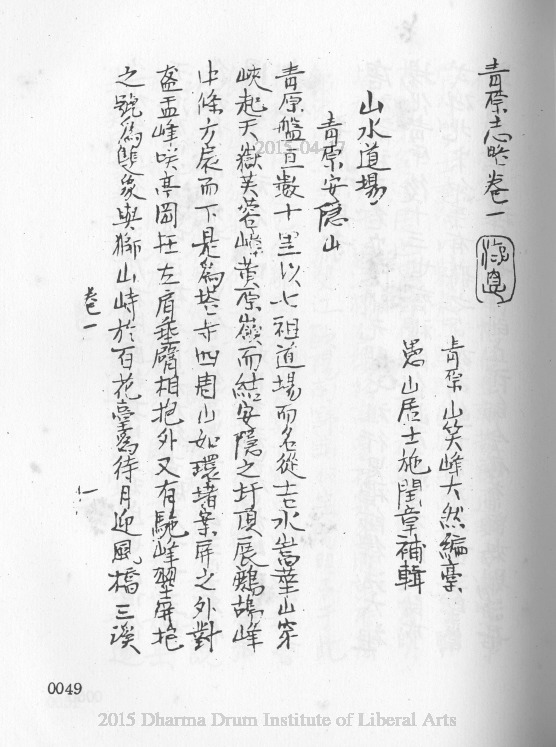 青原志略卷一
青原山笑峰大然編藁
愚山居士施閏章補輯
山水道場
青原安隱山
青原盤亘數十里以七祖道場而名從吉水嵩華山穿
峽起天嶽芙蓉嶂黃原嶺而結安隱之圩頂展鷓鴣峰
中條方扆而下是為塔寺四周山如環堵案屏之外對
盔盂峰咲亭岡在左肩垂臂相抱外又有駝峰翠屏抱
之號為雙象與獅山峙於百花臺為待月迎風橋三溪
卷一
一
2015-04-
0049
2015 Dharma Drum Institute of Liberal Arts